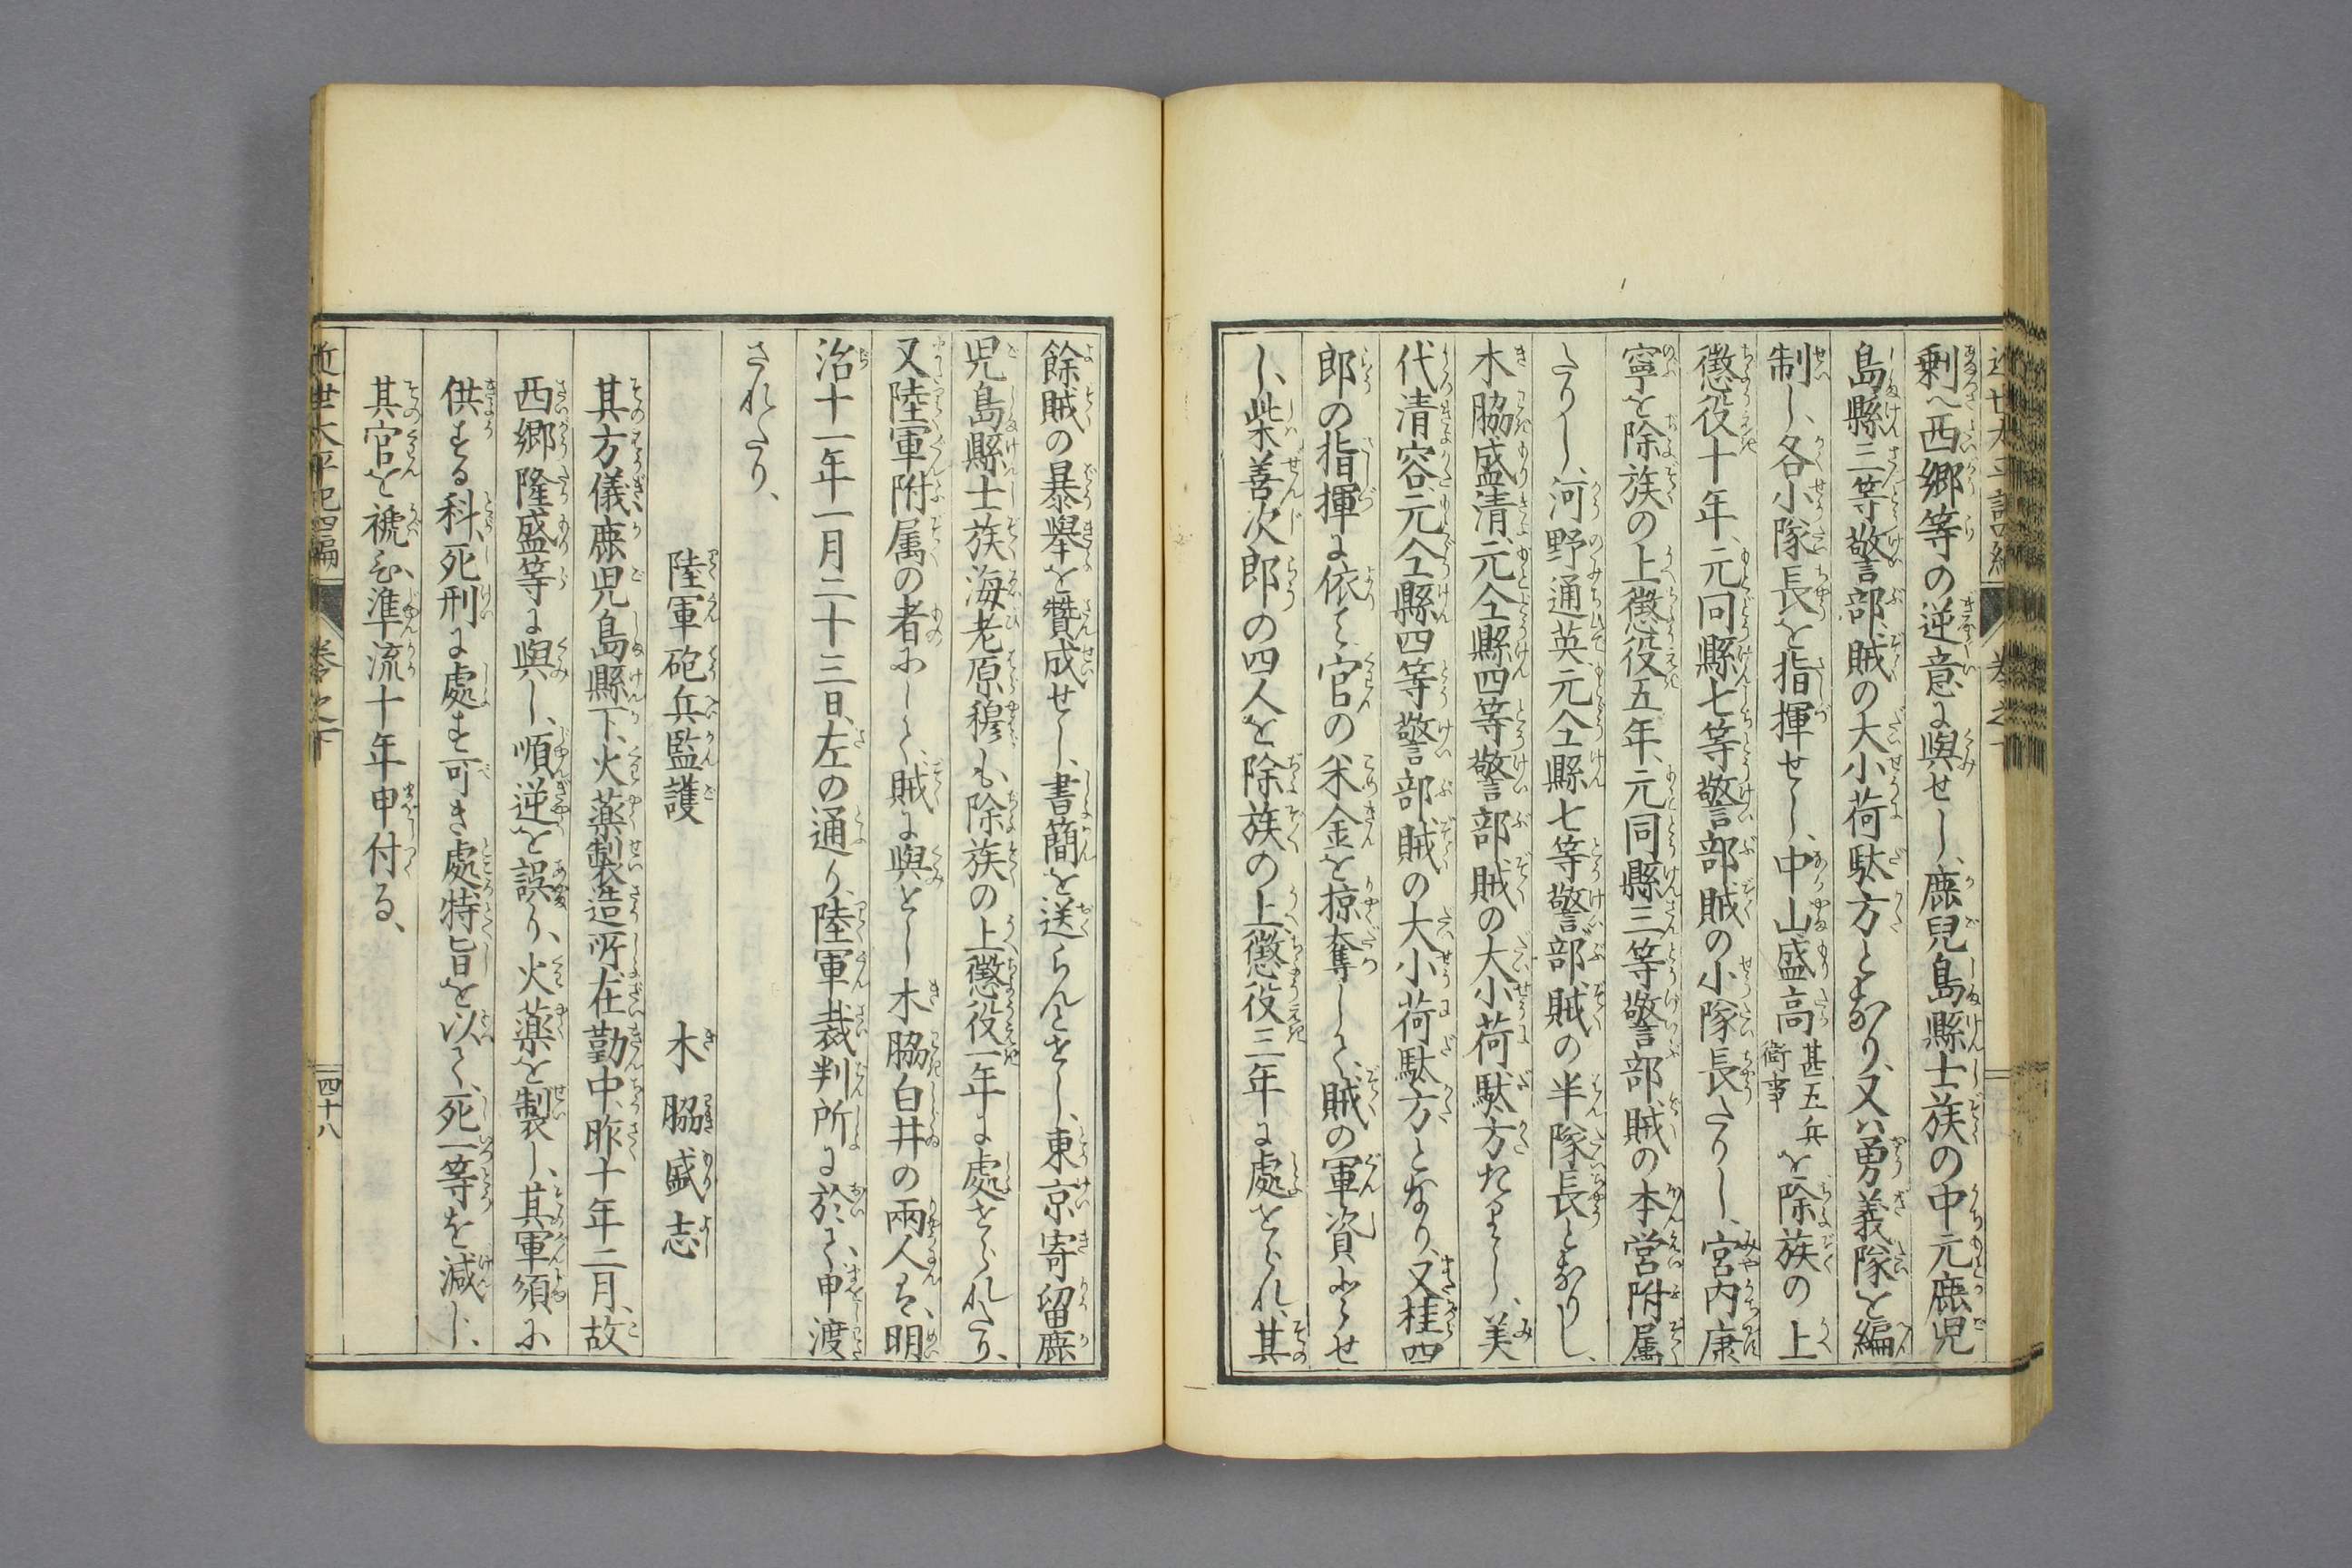 剰へ西郷等の逆意に與せし、鹿兒島縣士族の中元鹿児
島縣三等警部賊の大小荷駄方となり、又ハ勇義隊を編
制し、各小隊長を指揮せし、中山盛高甚五兵衛事を除族の上
懲役十年、元同縣七等警部賊の小隊長たりし、宮内康
寧を除族の上懲役五年、元同縣三等警部賊の本営附属
たりし、河野通英元仝縣七等警部賊の半隊長となりし、
木脇盛清、元仝縣四等警部賊の大小荷駄方たりし、美
代清容、元仝縣四等警部賊の大小荷駄方となり、又桂四
郎の指揮に依て、官の米金を掠奪して、賊の軍資となせ
し、柴善次郎の四人を除族の上懲役三年に處せられ、其
餘賊の暴舉を贊成せし、書簡を送らんとせし、東京寄留鹿
児島縣士族海老原穆も、除族の上懲役一年に處せられたり、
又陸軍附属の者にして、賊に與せし木脇白井の兩人は、明
治十一年一月二十三日、左の通り、陸軍裁判所に於て、申渡
されたり、
陸軍砲兵監護　木脇盛志
其方儀、鹿児島縣下、火薬製造所在勤中、昨十年二月、故
西郷隆盛等に與し、順逆を誤り、火薬を製し、其軍須に
供する科、死刑に處す可き處特旨を以て、死一等を減じ、
其官を褫ひ準流十年申付る、
近世太平記四編　巻之下　四十八